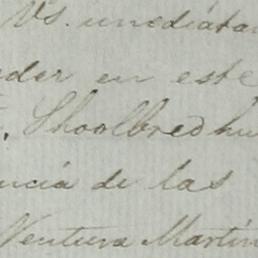 Vs. unediata
eder en este
. Shoolbred hu
ncia de las
Ventura Martin